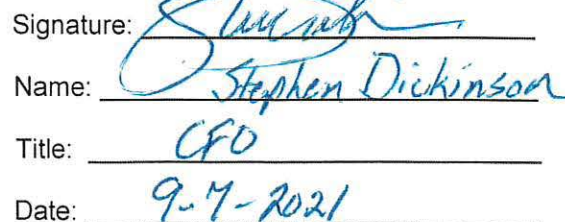 Signature:
Name: Stephen Dickinson
Title: CFO
Date: 9-7-2021